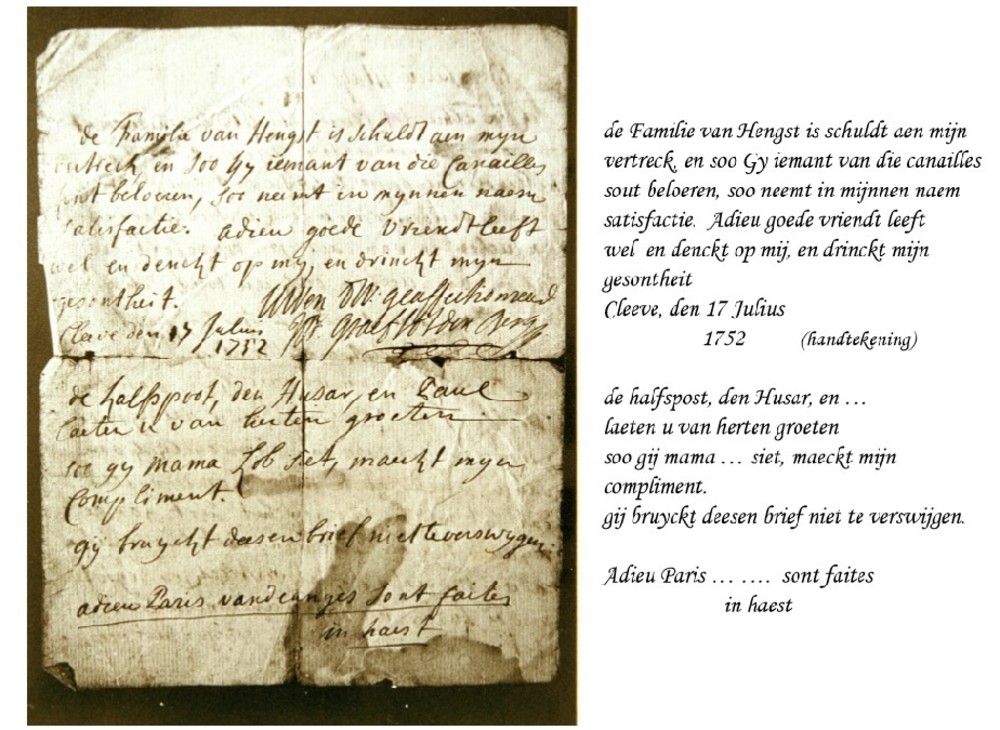 de Familie van Hengst is schuldt aen myn
vertreck, en soo Gy iemant van die Canailles
sout beloeren, soo neemt in mynnen naem
satisfactie. adieu goede vriendt leeft
wel en denckt op my, en drinckt myn
gesontheit.
Cleeve den 17 Julius
1752
de halfspoot, den Husar, en Paul
laeten u van herten groeten
soo gy mama siet, maeckt myn
Compliment.
gy bruyckt deesen brief niet te verswygen.
adieu Paris vandanges sont faites
in haest
de Familie van Hengst is schuldt aen mijn
vertreck, en soo Gy iemant van die canailles
sout beloeren, soo neemt in mijnnen naem
satisfactie. Adieu goede vriendt leeft
wel en denckt op mij, en drinckt mijn
gesontheit
Cleeve, den 17 Julius
1752 (handtekening)
de halfspost, den Husar, en ...
laeten u van herten groeten
soo gij mama ... siet, maeckt mijn
compliment.
gij bruyckt deesen brief niet te verswijgen.
Adieu Paris ... .... sont faites
in haest